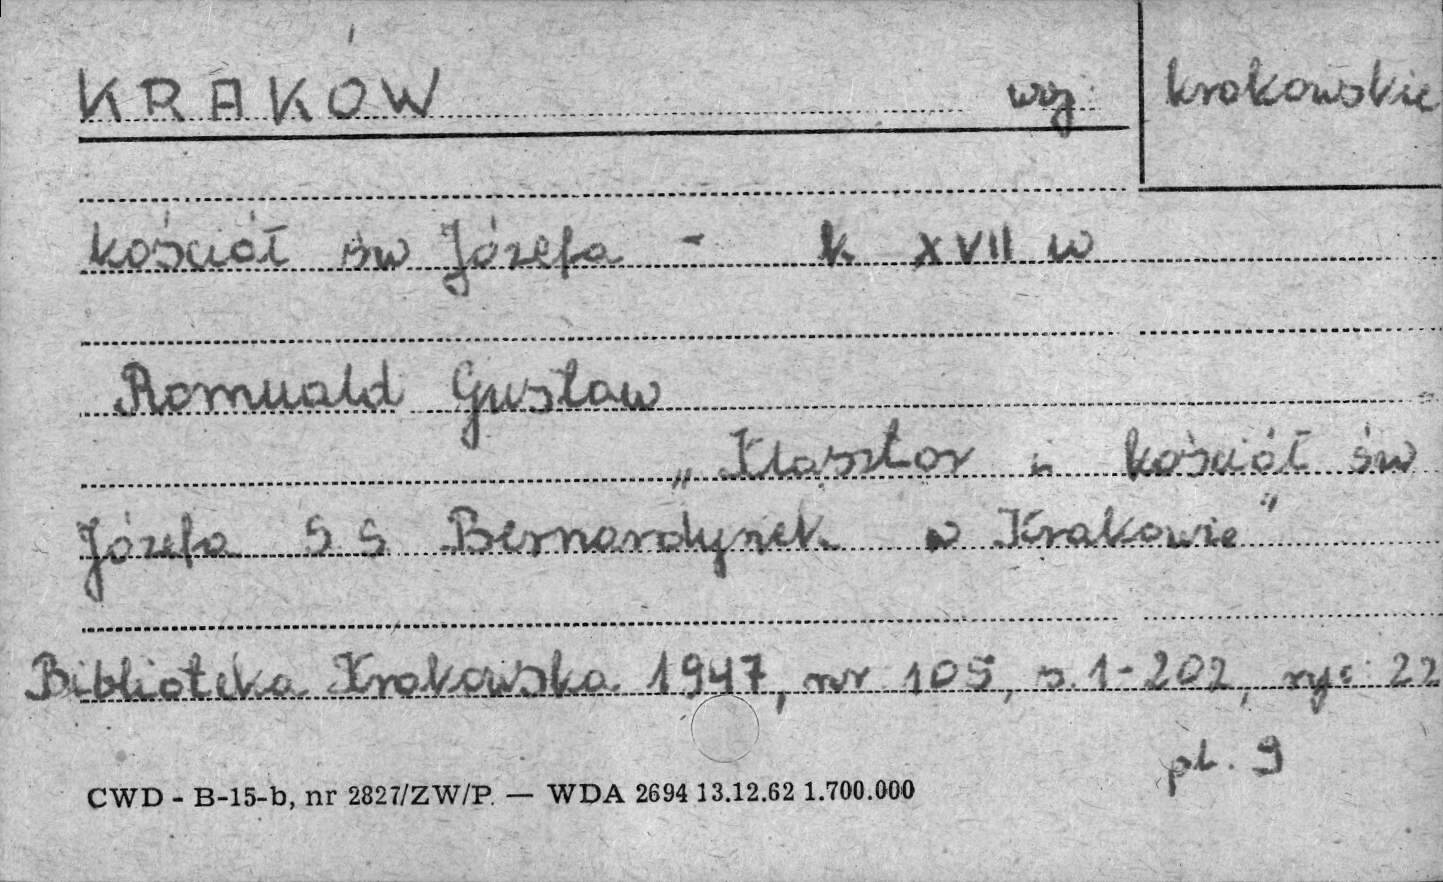 KRAKÓW woj. krakowskie
kościół św Józefa - k XVII w
Romuald Gustaw
„Klasztor i kościół św
Józefa S S Bernardynek w Krakowie"
Biblioteka Krakowska 1947, nr 105, s. 1-202, ryc 22
pl. 9
CWD - B-15-b, nr 2827/ZW/P. — WDA 2694 13.12.62 1.700.000